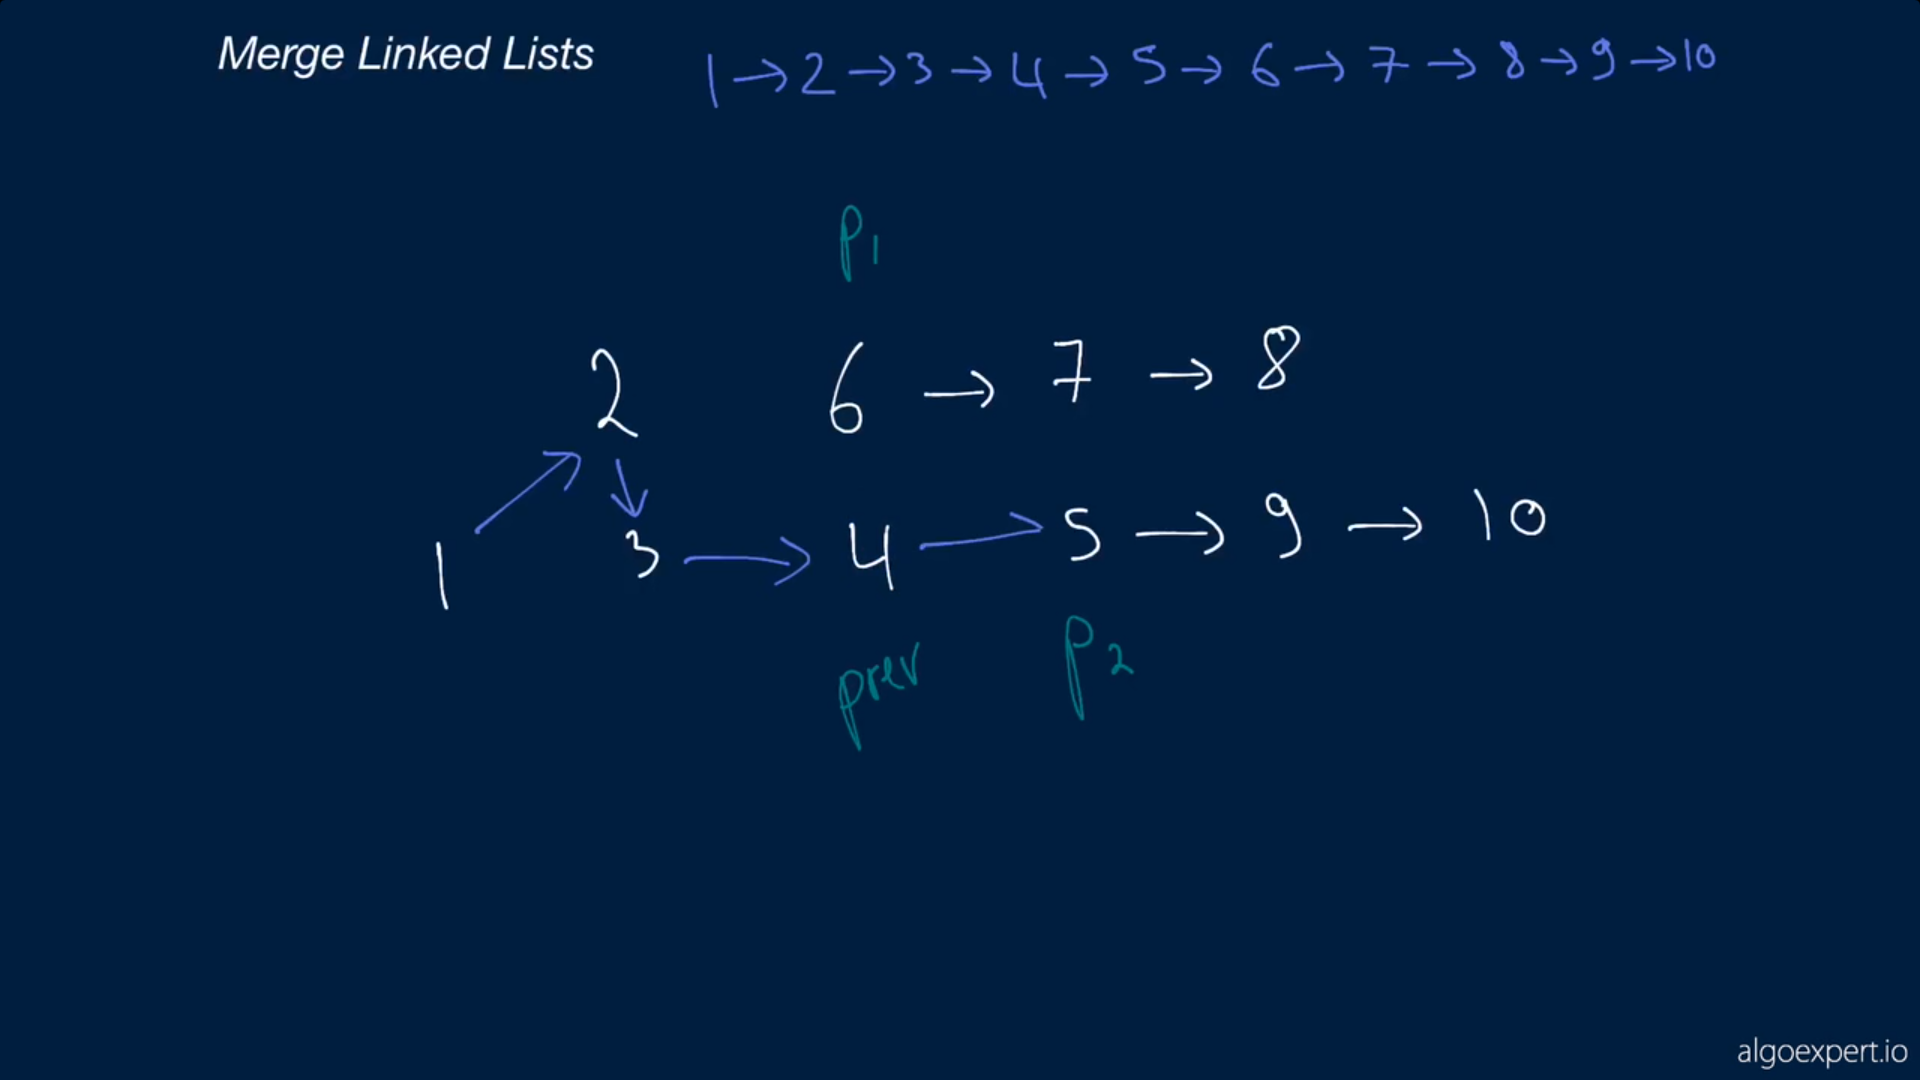 Merge Linked Lists
1 → 2 → 3 → 4 → 5 → 6 → 7 → 8 → 9 → 10
P1
2 6 → 7 → 8
1 3 → 4 → 5 → 9 → 10
prev P2
algoexpert.io